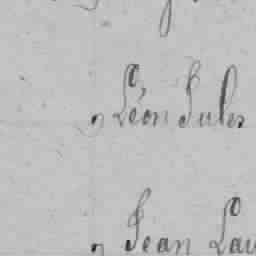 , Léon Jules
, Jean Lau